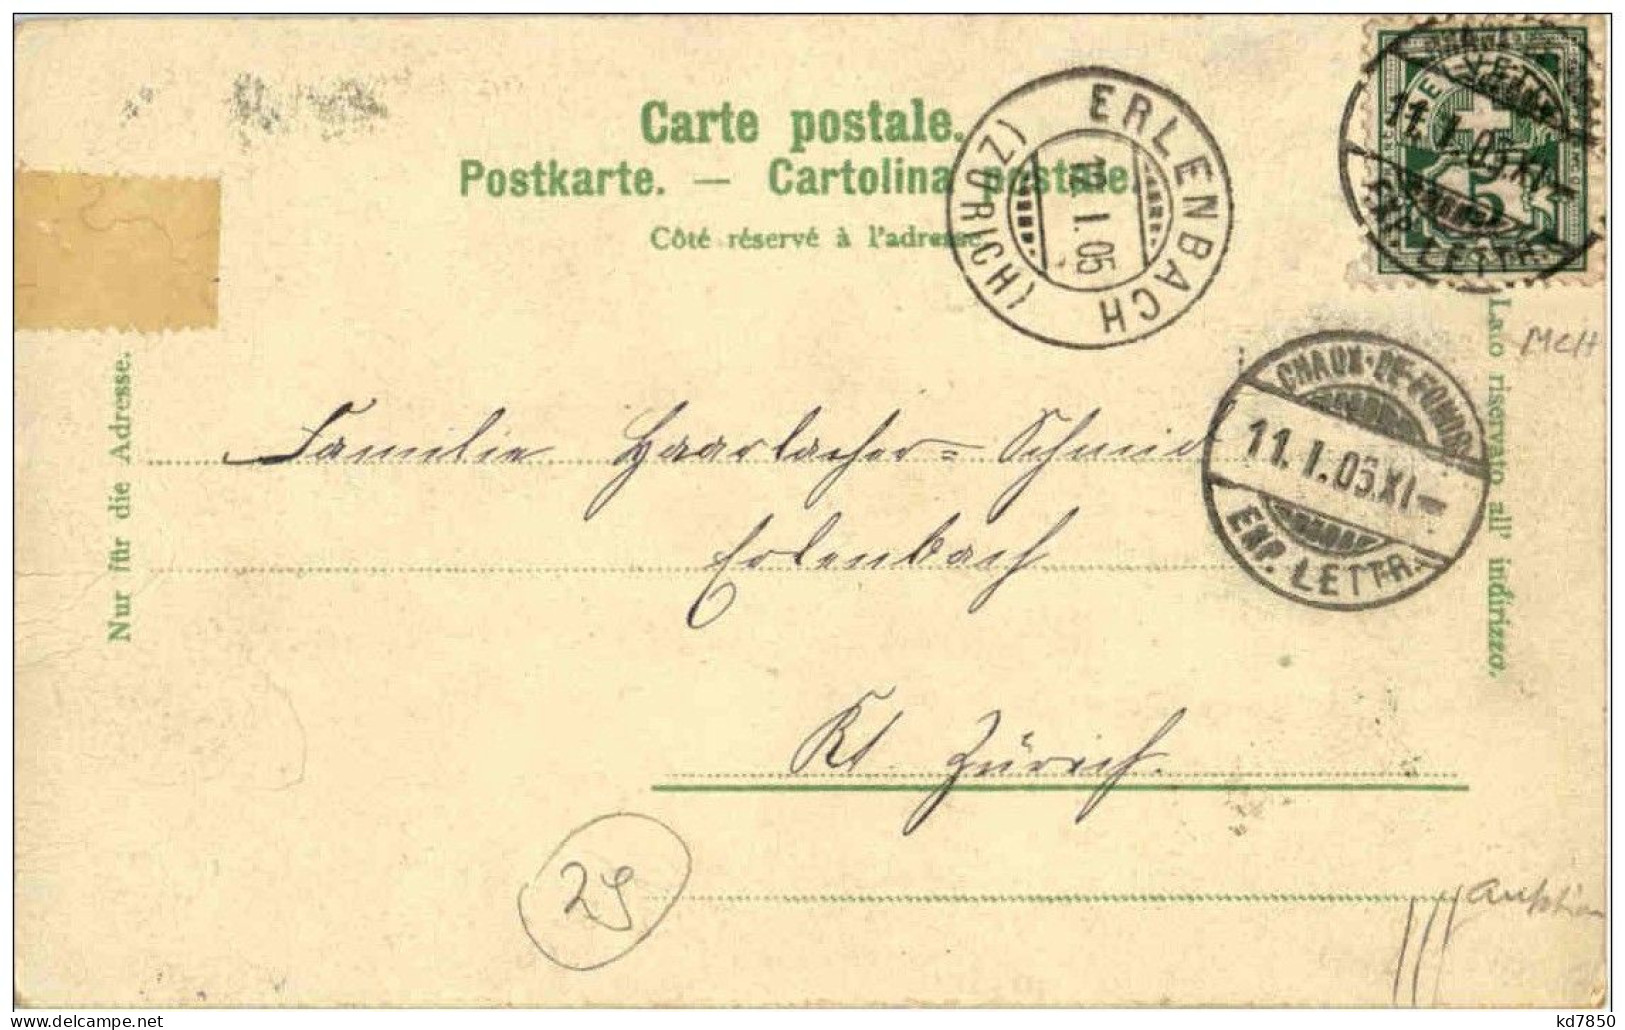 Carte postale.
Postkarte. — Cartolina postale.
Côté réservé à l'adresse
ERLENBACH
(ZÜRICH)
12.I.05
HELVETIA
5
11.I.05.XI
EXP. LETTR.
CHAUX-DE-FONDS
11.I.05.XI
EXP. LETTR.
Nur für die Adresse.
Lato riservato all' indirizzo.
Familie Haarlacher-Schmid
Erlenbach
Kt. Zürich.
Auktion
delcampe.net
kd7850